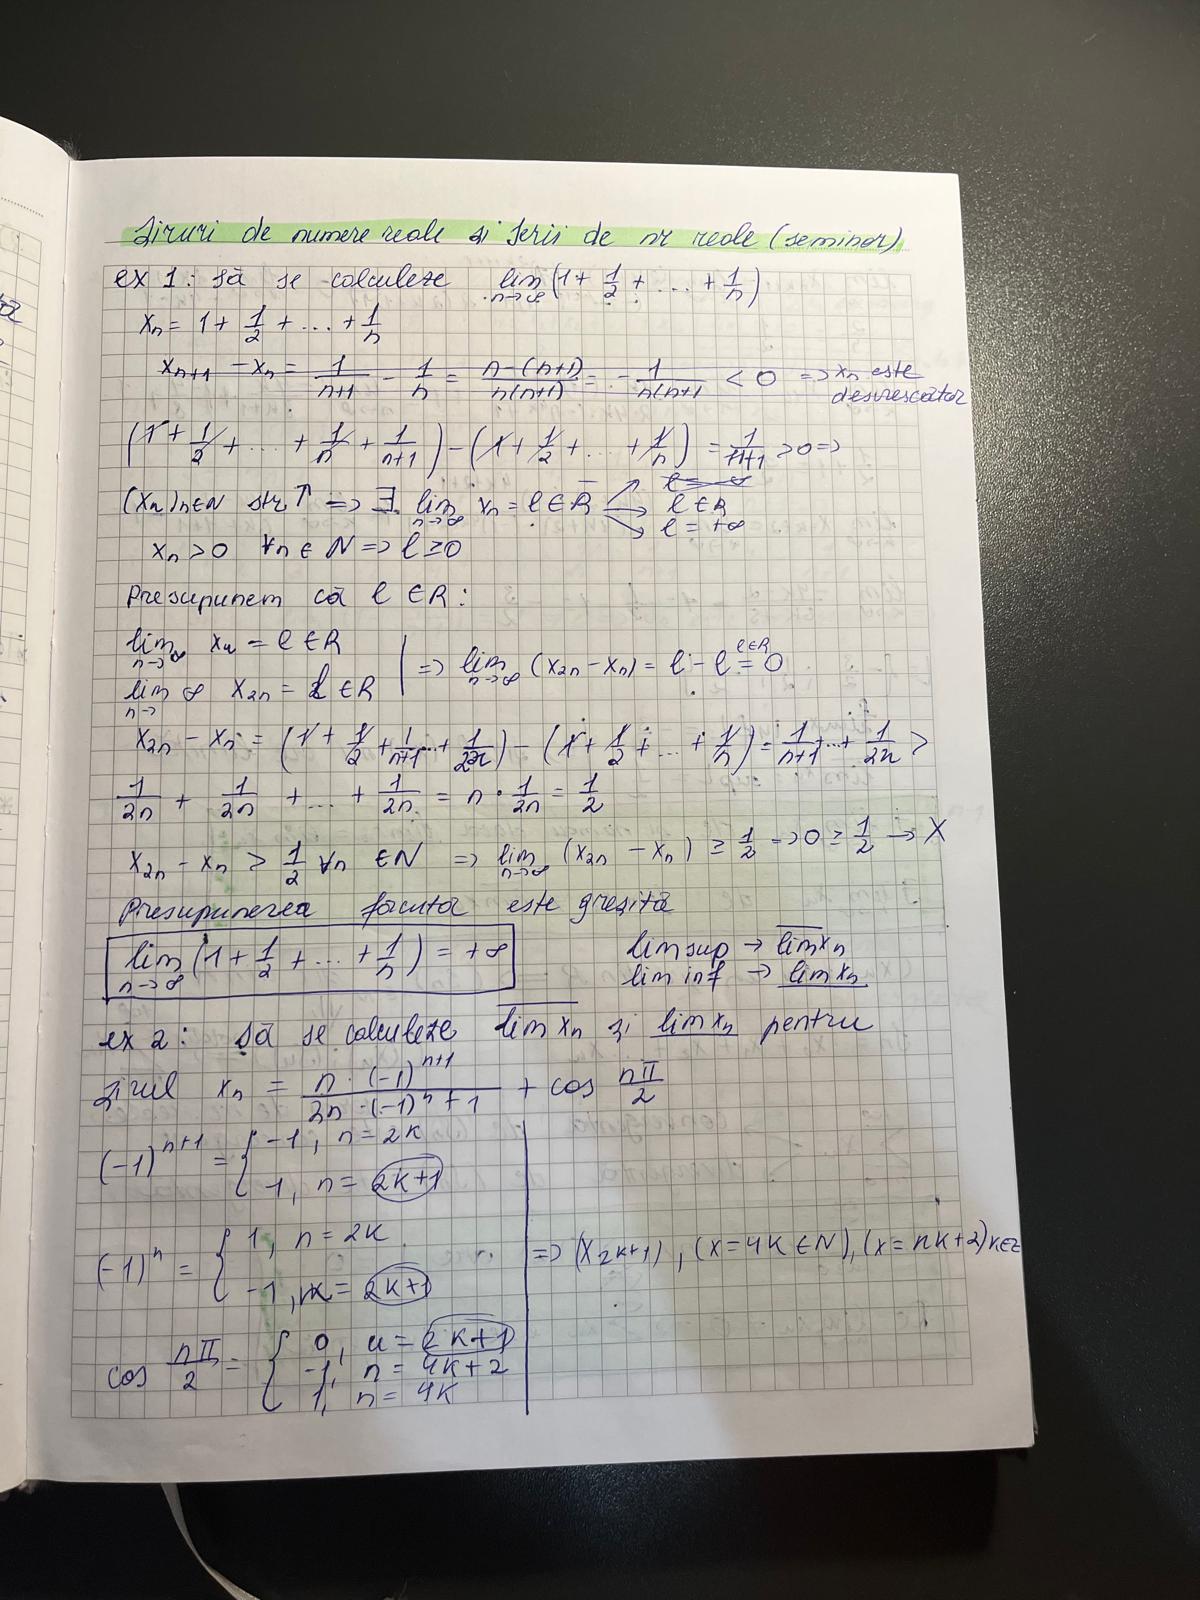 Şiruri de numere reale şi serii de nr reale (seminar)
ex 1: să se calculeze lim n→∞ (1 + 1/2 + ... + 1/n)
xn = 1 + 1/2 + ... + 1/n
xn+1 - xn = 1/(n+1) - 1/n = (n-(n+1))/(n(n+1)) = - 1/(n(n+1) < 0 => xn este descrescător
(1 + 1/2 + ... + 1/n + 1/(n+1)) - (1 + 1/2 + ... + 1/n) = 1/(n+1) > 0 =>
(xn)n∈N str ↑ => ∃ lim n→∞ xn = l ∈ R̄ → l = -∞
l ∈ R
l = +∞
xn > 0 ∀n ∈ N => l ≥ 0
Presupunem că l ∈ R:
lim n→∞ xn = l ∈ R
lim n→∞ x2n = l ∈ R | => lim n→∞ (x2n - xn) = l - l = 0 l∈R
x2n - xn = (1 + 1/2 + 1/(n+1) ... + 1/2n) - (1 + 1/2 + ... + 1/n) = 1/(n+1) + ... + 1/2n >
1/2n + 1/2n + ... + 1/2n = n · 1/2n = 1/2
x2n - xn > 1/2 ∀n ∈ N => lim n→∞ (x2n - xn) ≥ 1/2 => 0 ≥ 1/2 → X
Presupunerea făcută este greşită
lim n→∞ (1 + 1/2 + ... + 1/n) = +∞
lim sup → l̅i̅m̅ xn
lim inf → l̲i̲m̲ xn
ex 2: Să se calculeze l̅i̅m̅ xn şi l̲i̲m̲ xn pentru
şirul xn = (n · (-1)^(n+1))/(2n · (-1)^n + 1) + cos nπ/2
(-1)^(n+1) = { -1, n = 2k
1, n = 2k+1
(-1)^n = { 1, n = 2k
-1, n = 2k+1
=> (x2k+1), (x=4k∈N), (x=nk+2)k∈Z
cos nπ/2 = { 0, n = 2k+1
-1, n = 4k+2
1, n = 4k